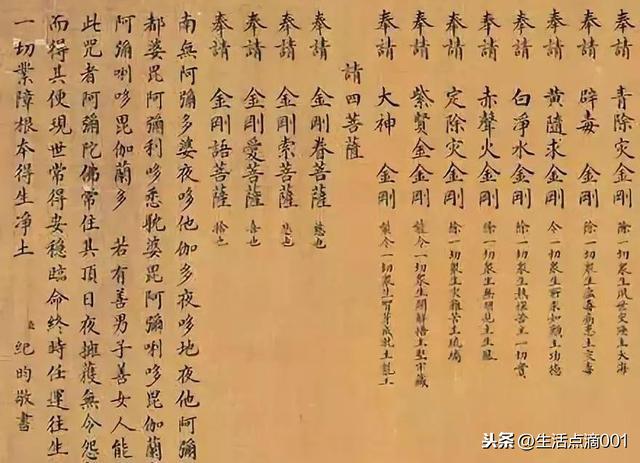 奉請 青除灾金剛 除一切衆生
奉請 辟毒 金剛 除一切衆生
奉請 黄隨求金剛 令一切衆生所求如願主功德
奉請 白淨水金剛 除一切衆生熱惱苦主一切寶
奉請 赤聲火金剛 除一切衆生
奉請 定除灾金剛 除一切衆生灾難苦主
奉請 紫賢金金剛 能令一切衆生開解悟主
奉請 大神 金剛 能令一切衆生智芽成就主
請四菩薩
奉請 金剛眷菩薩 慈也
奉請 金剛索菩薩 悲也
奉請 金剛愛菩薩 喜也
奉請 金剛語菩薩 捨也
南無阿彌多婆夜哆他伽多夜哆地夜他阿彌
都婆毘阿彌利哆悉耽婆毘阿彌唎哆毘伽蘭
阿彌唎哆毘伽蘭多 若有善男子善女人能
此咒者阿彌陀佛常住其頂日夜擁護無令怨
而得其便現世常得安穩臨命終時任運往生
一切業障根本得生净土
臣 紀昀敬書
头条 @生活点滴001